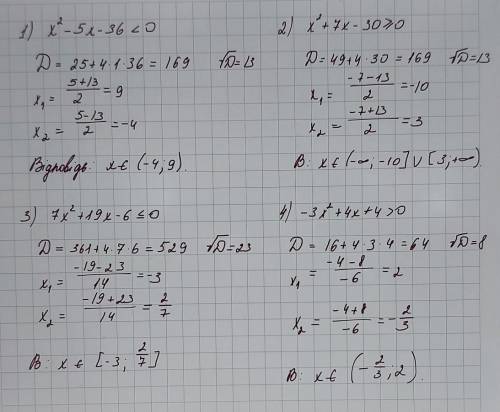 1) x² - 5x - 36 < 0
D = 25 + 4·1·36 = 169 √D = 13
x₁ = (5+13)/2 = 9
x₂ = (5-13)/2 = -4
Відповідь: x ∈ (-4; 9).
2) x² + 7x - 30 ≥ 0
D = 49 + 4·30 = 169 √D = 13
x₁ = (-7-13)/2 = -10
x₂ = (-7+13)/2 = 3
В: x ∈ (-∞; -10] ∪ [3; +∞)
3) 7x² + 19x - 6 ≤ 0
D = 361 + 4·7·6 = 529 √D = 23
x₁ = (-19-23)/14 = -3
x₂ = (-19+23)/14 = 2/7
В: x ∈ [-3; 2/7]
4) -3x² + 4x + 4 > 0
D = 16 + 4·3·4 = 64 √D = 8
x₁ = (-4-8)/-6 = 2
x₂ = (-4+8)/-6 = -2/3
В: x ∈ (-2/3; 2).